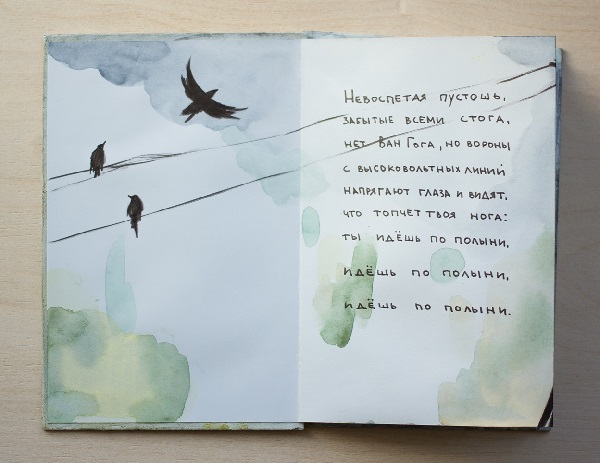 Невоспетая пустошь,
забытые всеми стога,
нет Ван Гога, но вороны
с высоковольтных линий
напрягают глаза и видят,
что топчет твоя нога:
ты идёшь по полыни,
идёшь по полыни,
идёшь по полыни.